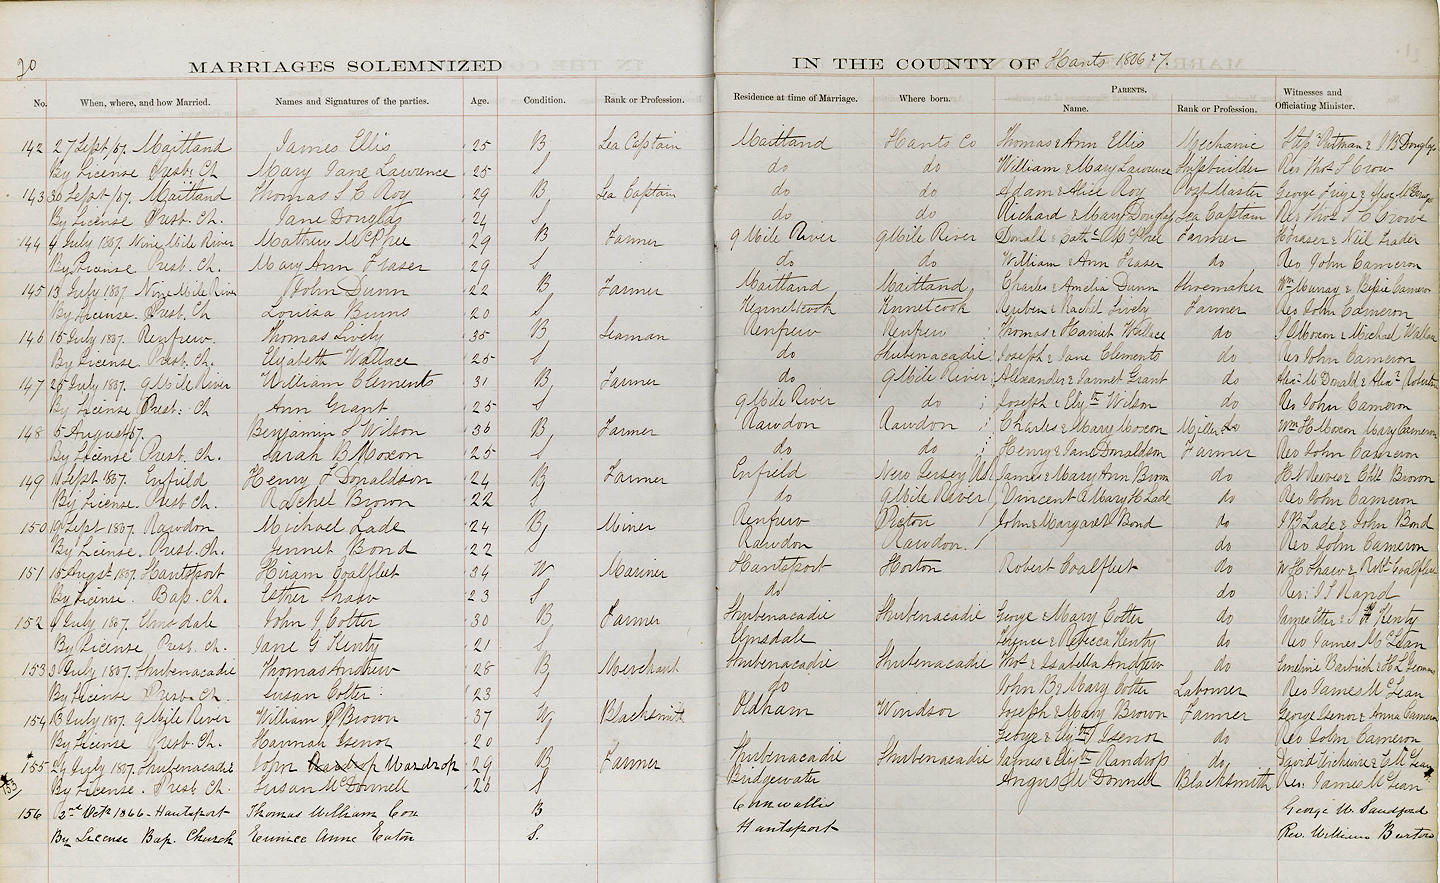 20 MARRIAGES SOLEMNIZED IN THE COUNTY OF Hants 1866 & 7.
No. When, where, and how Married. Names and Signatures of the parties. Age. Condition. Rank or Profession. Residence at time of Marriage. Where born. PARENTS. Name. Rank or Profession. Witnesses and Officiating Minister.
142 27 Sept/67. Maitland James Ellis 25 B Sea Captain Maitland Hants Co Thomas & Ann Ellis Mechanic Putman & Douglas
By License Presb. Ch Mary Jane Lawrence 25 S do do William & Mary Lawrence Shipbuilder Rev Thos S Crow
143 30 Sept/67. Maitland Thomas S C Roy 29 B Sea Captain do do Adam & Alice Roy Post Master George Frieze &
By License Presb. Ch. Jane Douglas 24 S do do Richard & Mary Douglas Sea Captain Rev Thos S C Crowe
144 4 July 1867. Nine Mile River Mathew McPhee 29 B Farmer 9 Mile River 9 Mile River Donald & Cath. McPhee Farmer Fraser & Neil
By License Presb. Ch. Mary Ann Fraser 29 S do do William & Ann Fraser do Rev John Cameron
145 13 July 1867 Nine Mile River John Dunn 22 B Farmer Maitland Maitland Charles & Amelia Dunn Shoemaker Wm Murray & Bessie Cameron
By License. Presb. Ch Louisa Burns 20 S Kennetcook Kennetcook Reuben & Rachel Lively Farmer Rev John Cameron
146 15 July 1867. Renfrew. Thomas Lively 35 B Seaman Renfrew Renfrew Thomas & Harriet Wallace do Moxon & Michael Wallace
By License. Presb. Ch. Elizabeth Wallace 25 S do Shubenacadie Joseph & Jane Clements do Rev John Cameron
147 25 July 1867. 9 Mile River William Clements 31 B Farmer do 9 Mile River Alexander & Jannet Grant do Alex. McDonald & Alex. Robertson
By License Presb. Ch Ann Grant 25 S 9 Mile River do Joseph & Eliz.th Wilson do Rev John Cameron
148 5 August/67. Benjamin S Wilson 36 B Farmer Rawdon Rawdon Charles & Mary Moxon Miller Wm H Moxon Mary Cameron
By License Presb. Ch. Sarah B Moxon 25 S do do Henry & Jane Donaldson Farmer Rev John Cameron
149 11 Sept 1867. Enfield Henry F Donaldson 24 B Farmer Enfield New Jersey U.S James & Mary Ann Brown do Brown
By License. Presb. Ch Rachel Brown 22 S do 9 Mile River Vincent & Mary H Lade do Rev John Cameron
150 19 Sept 1867. Rawdon Michael Lade 24 B Miner Renfrew Picton John & Margaret Bond do J B Lade & John Bond
By License. Presb. Ch. Jennet Bond 22 S Rawdon Rawdon. do Rev John Cameron
151 15 August 1867. Hantsport Hiram Coalfleet 34 W Mariner Hantsport Horton Robert Coalfleet do W H Shaw & Robt Coalfleet
By License. Bap. Ch. Esther Shaw 23 S do do Rev. Rand
152 4 July 1867. Elmsdale John J Cotter 30 B Farmer Shubenacadie Shubenacadie George & Mary Cotter do James Etter & Kenty
By License Presb. Ch. Jane G Kenty 21 S Elmsdale Terence & Rebecca Kenty do Rev James McLean
153 3 July 1867. Shubenacadie Thomas Andrew 28 B Merchant Shubenacadie Shubenacadie Thos. & Isabella Andrew do
By License Presb. Ch. Susan Cotter 23 S do John B & Mary Cotter Labourer Rev James McLean
154 13 July 1867. 9 Mile River William P Brown 37 W Blacksmith Oldham Windsor Joseph & Mary Brown Farmer George Isenor & Anna Cameron
By License Presb. Ch. Hannah Isenor 20 S George & Eliz.th Isenor do Rev John Cameron
155 24 July 1867. Shubenacadie John Wardrop 29 B Farmer Shubenacadie Shubenacadie James & Eliz.th Randrop do David
By License. Presb Ch. Susan McDonnell 26 S Bridgewater Angus McDonnell Blacksmith Rev. James McLean
156 2nd Octr 1866 - Hantsport Thomas William Cox B Cornwallis George W. Sandford
By License Bap. Church Eunice Anne Eaton S. Hantsport Rev. William Burton